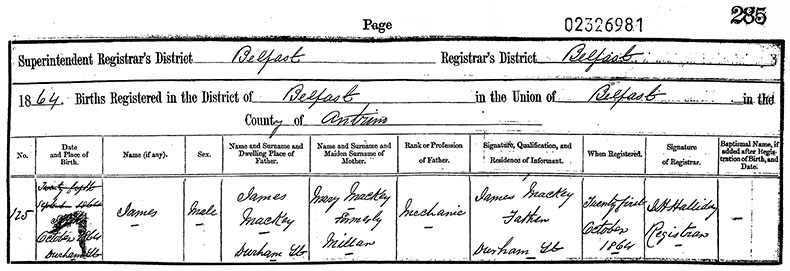 Page
02326981
285
Superintendent Registrar's District Belfast Registrar's District Belfast
1864. Births Registered in the District of Belfast in the Union of Belfast in the
County of Antrim
No. Date and Place of Birth. Name (if any). Sex. Name and Surname and Dwelling Place of Father. Name and Surname and Maiden Surname of Mother. Rank or Profession of Father. Signature, Qualification, and Residence of Informant. When Registered. Signature of Registrar. Baptismal Name, if added after Registration of Birth, and Date.
125
Twenty fifth
October 1864
Durham St
James
Male
James
Mackey
Durham St
Mary Mackey
formerly
Millan
Mechanic
James Mackey
Father
Durham St
Twenty first
October
1864
Halliday
Registrar